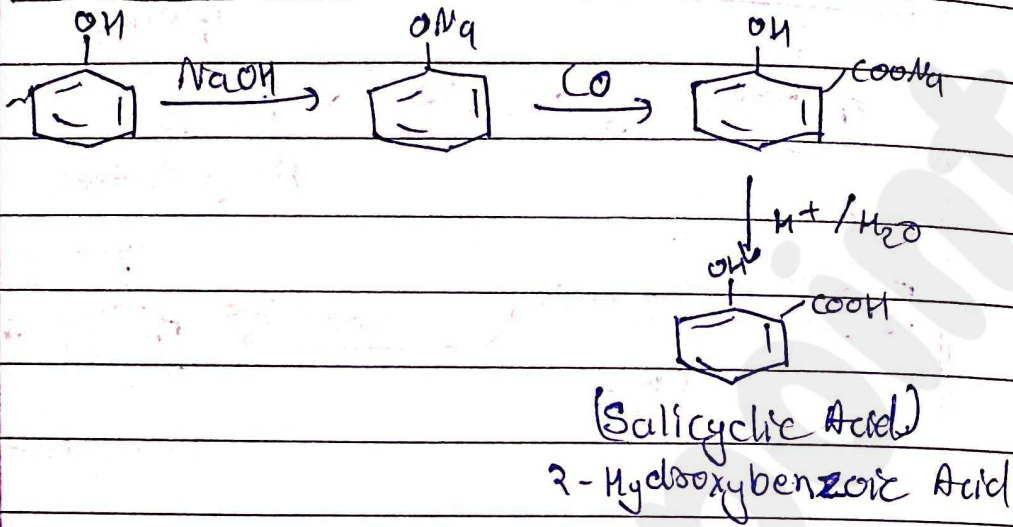 OH ONa OH
NaOH CO COONa
H+ / H2O
OH
COOH
(Salicyclic Acid)
2-Hydroxybenzoic Acid